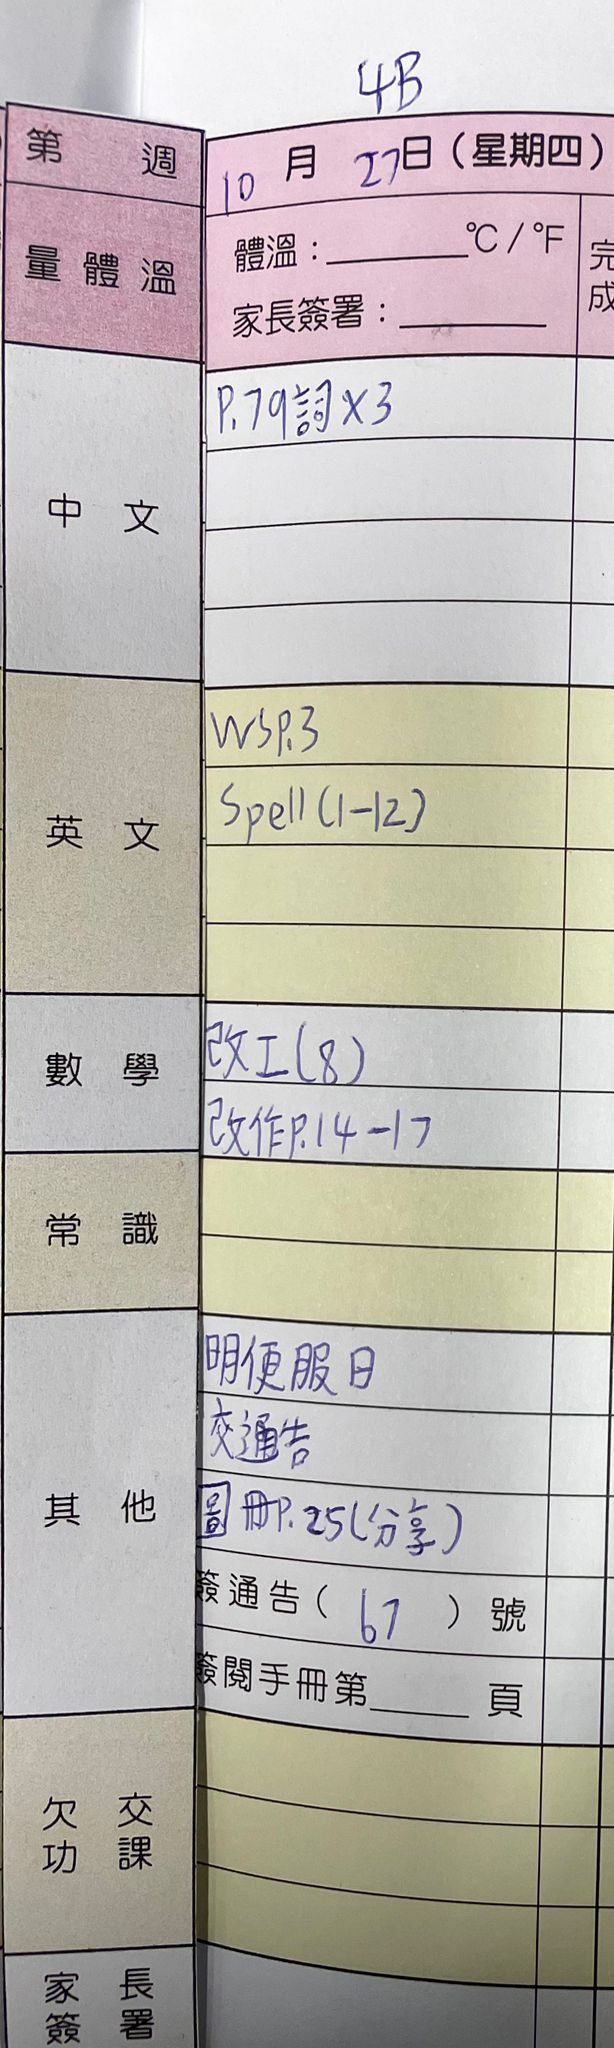 4B
第 週
10 月 27 日（星期四）
量體溫
體溫：______°C / °F
家長簽署：______
完成
中文
P.79詞×3
英文
WSP.3
Spell (1-12)
數學
改工(8)
改作P.14-17
常識
其他
明便服日
交通告
圖冊P.25(分享)
簽通告（ 67 ）號
簽閱手冊第____頁
欠交功課
家長簽署